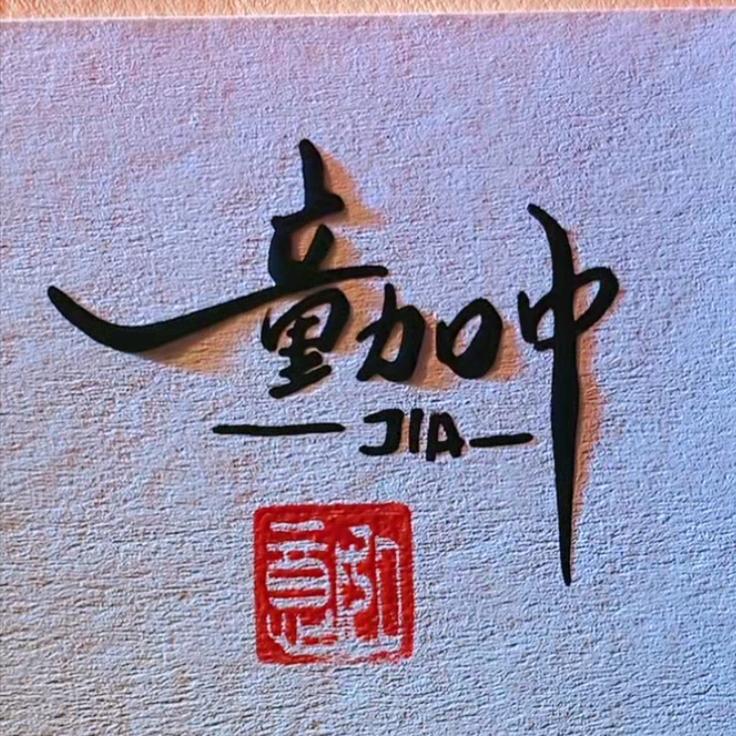 童加中
JIA